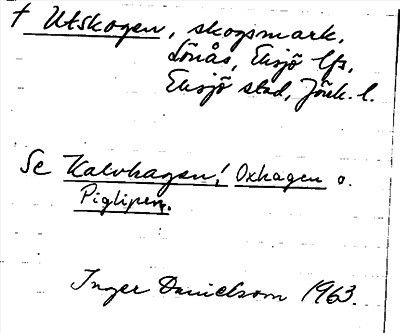 † Utskogen, skogsmark,
Lönås, Eksjö lfs,
Eksjö stad, Jönk. l.
Se Kalvhagen, Oxhagen o.
Piglipen.
Inger Danielsom 1963.